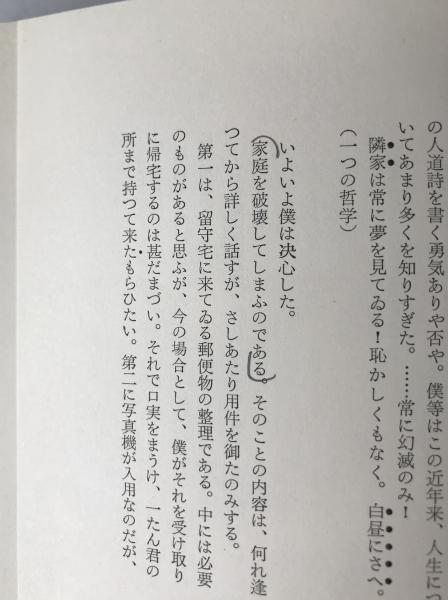 の人道詩を書く勇気ありや否や。僕等はこの近年来、人生につ
いてあまり多くを知りすぎた。……常に幻滅のみ！
隣家は常に夢を見てゐる！恥かしくもなく。白昼にさへ。
（一つの哲学）
いよいよ僕は決心した。
家庭を破壊してしまふのである。そのことの内容は、何れ逢
つてから詳しく話すが、さしあたり用件を御たのみする。
第一は、留守宅に来てゐる郵便物の整理である。中には必要
のものがあると思ふが、今の場合として、僕がそれを受け取り
に帰宅するのは甚だまづい。それで口実をまうけ、一たん君の
所まで持つて来たもらひたい。第二に写真機が入用なのだが、